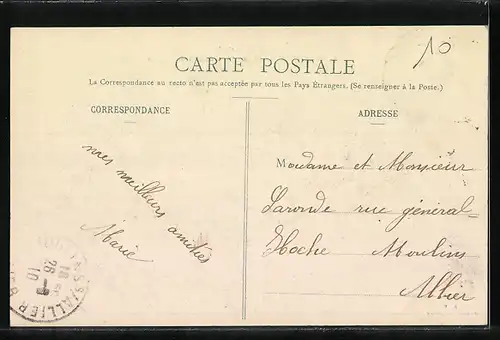 10
CARTE POSTALE
La Correspondance au recto n'est pas acceptée par tous les Pays Étrangers. (Se renseigner à la Poste.)
CORRESPONDANCE
ADRESSE
mes meilleurs amitiés
Marie
Madame et Monsieur
Laronde rue général
Hoche Moulins
Allier
18
26
10
ALLIER